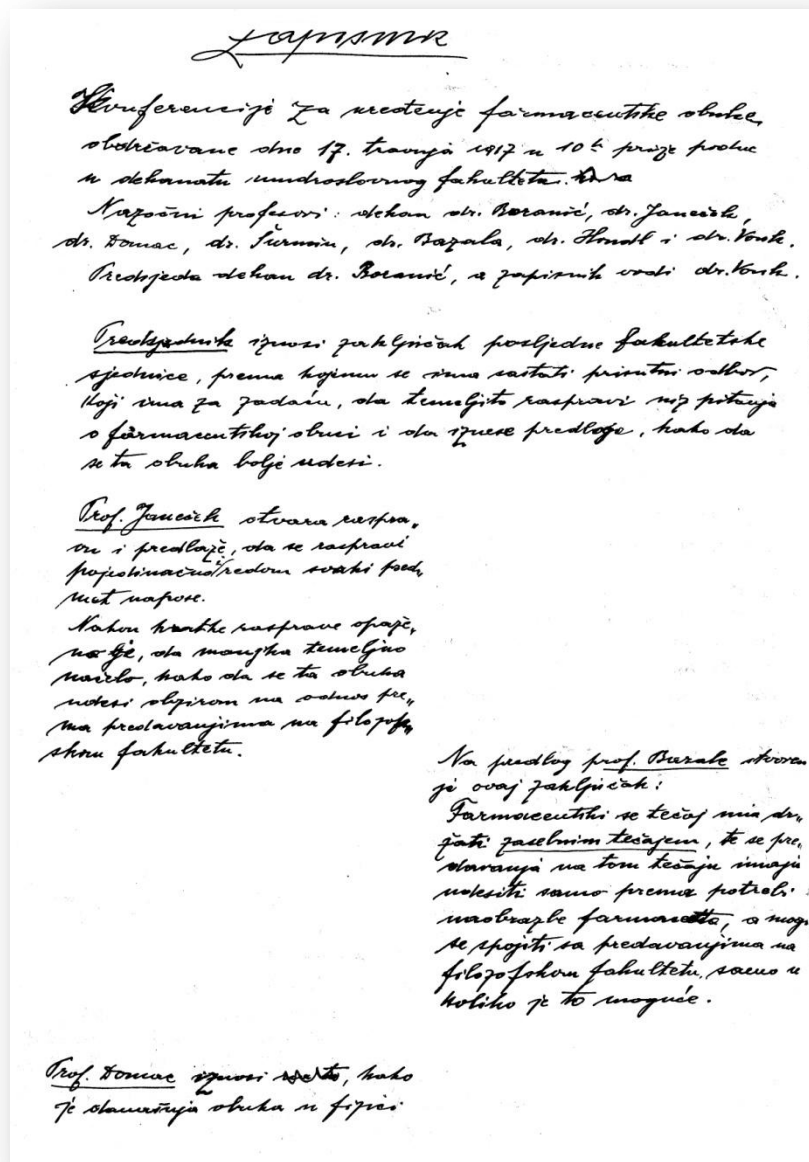 Zapisnik
Konferencije za uređenje farmaceutske obuke,
obdržavane dne 17. travnja 1917 u 10h prije podne
u dekanatu mudroslovnog fakulteta.
Nazočni profesori: dekan dr. Boranić, dr. Janeček,
dr. Domac, dr. Šurmin, dr. Bazala, dr. Hondl i dr. Vouk.
Predsjeda dekan dr. Boranić, a zapisnik vodi dr. Vouk.
Predsjednik iznosi zaključak posljedne fakultetske
sjednice, prema kojemu se ima sastati prisutni odbor,
koji ima za zadaću, da temeljito raspravi niz pitanja
o farmaceutskoj obuci i da iznese predloge, kako da
se ta obuka bolje udesi.
Prof. Janeček otvara raspra„
vu i predlaže, da se raspravi
pojedinačno redom svaki pred„
met napose.
Nakon kratke rasprave opaže„
no je, da manjka temeljno
načelo, kako da se ta obuka
udesi obzirom na odnos pre„
ma predavanjima na filozof„
skom fakultetu.
Na predlog prof. Bazale stvoren
je ovaj zaključak:
Farmaceutski se tečaj ima dr„
žati zasebnim tečajem, te se pre„
davanja na tom tečaju imaju
udesiti samo prema potrebi
naobrazbe farmaceuta, a mogu
se spojiti sa predavanjima na
filozofskom fakultetu, samo u
koliko je to moguće.
Prof. Domac iznosi to, kako
je današnja obuka u fizici